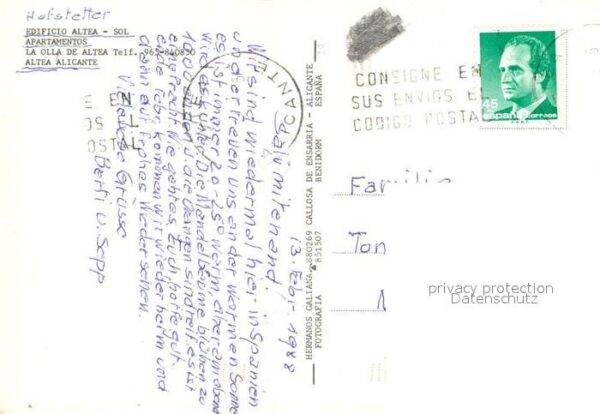 Hofstetter
EDIFICIO ALTEA - SOL
APARTAMENTOS
LA OLLA DE ALTEA Telf. 965-840850
ALTEA ALICANTE
ALICANTE
CONSIGNE EN
SUS ENVIOS EL
CODIGO POSTA
45
españa
correos
13 Febr. 1988
Salü mitenand!
Wir sind wiedermal hier in Spanien
und erfreuen uns an der warmen Sonne
es ist immer 20-25° warm aber am abend
wird es kühl. Die Mandelbäume blühen zu
1000 und die Orangen sind reif. es ist
eine Pracht. Wie geht es Euch, hoffe gut.
Ende Febr. kommen wir wieder heim und
dann auf frohes Wiedersehen.
Viele liebe Grüsse
Berti u. Sepp
HERMANOS GALIANA 880269 CALLOSA DE ENSARRIA - ALICANTE
FOTOGRAFIA 851507 BENIDORM ESPAÑA
Familie
Ton
privacy protection
Datenschutz